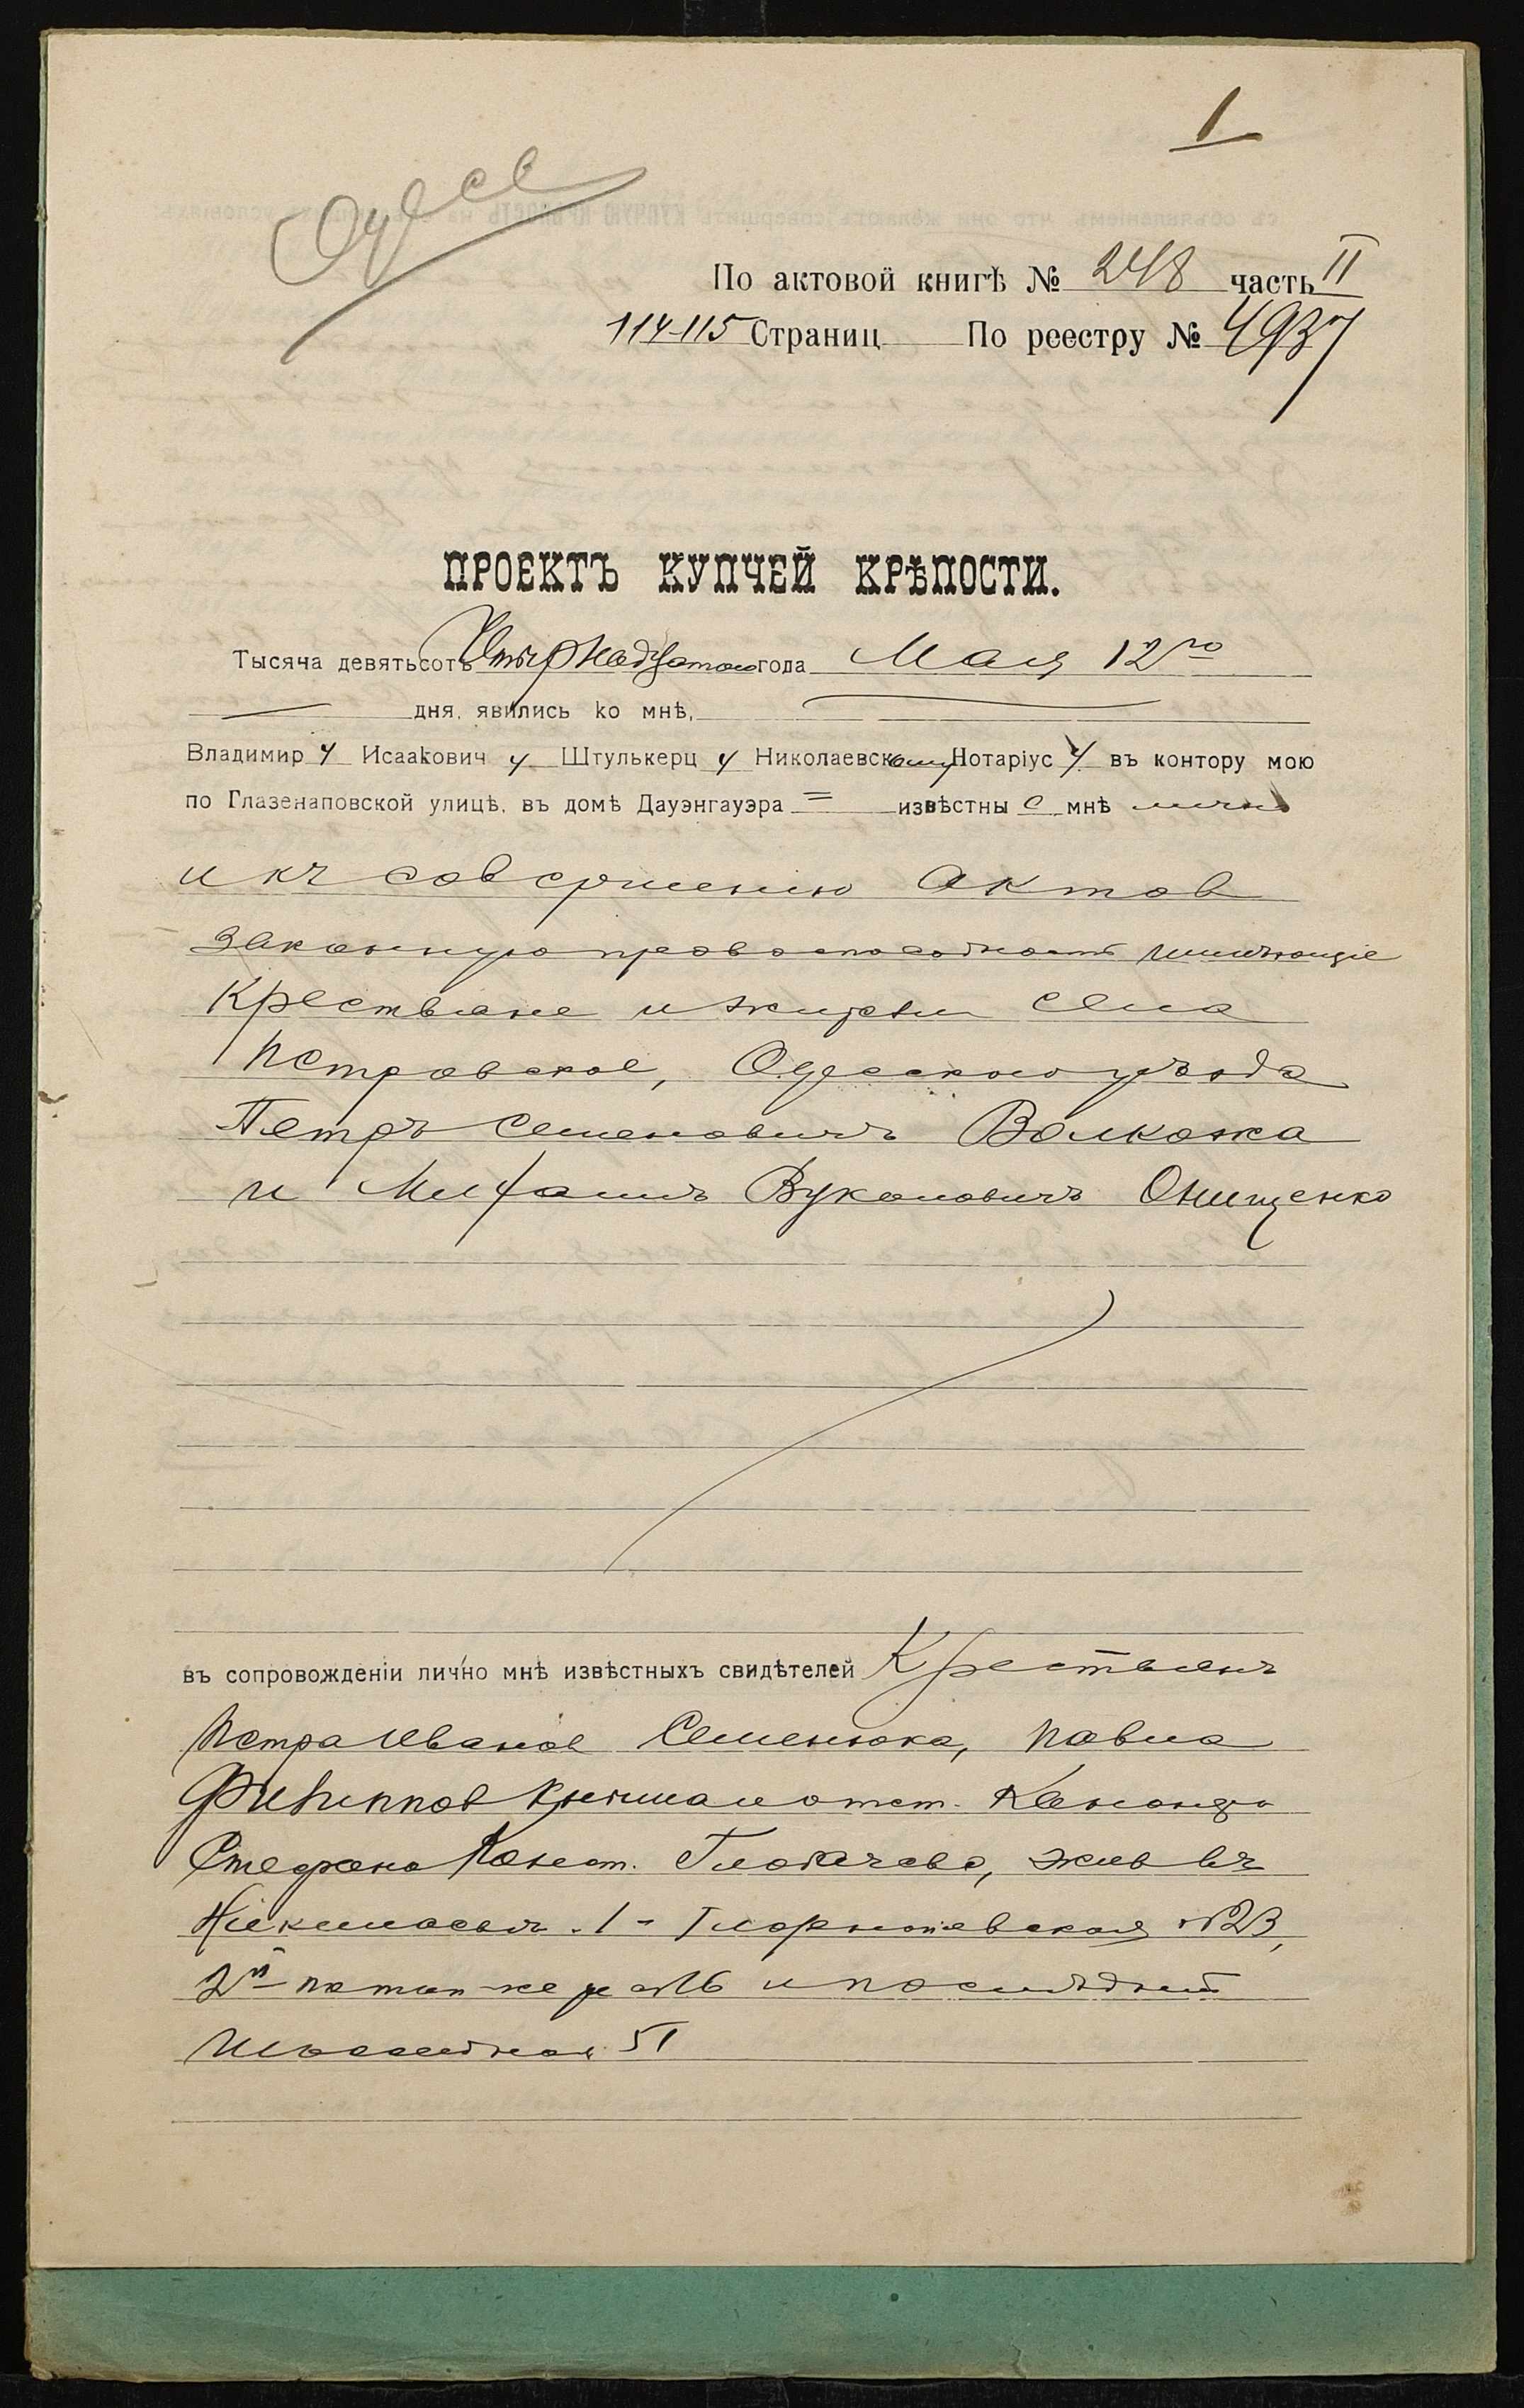 1
Одес
По актовой книгѣ № 248 часть II
114-115 Страниц По реестру № 4937
ПРОЕКТЪ КУПЧЕЙ КРѢПОСТИ.
Тысяча девятьсотъ Четырнадцатого года Мая 12го
дня, явились ко мнѣ,
Владимир у Исаакович у Штулькерц у Николаевскому Нотаріус у въ контору мою
по Глазенаповской улицѣ, въ домѣ Дауэнгауэра = извѣстны е мнѣ лично
и къ совершенію актов
законную правоспособность имѣющіе
Крестьяне и жители села
Петровское, Одесского уѣзда
Петръ Семеновичъ Волкожа
и Митофанъ Вуколовичъ Онищенко
въ сопровожденіи лично мнѣ извѣстныхъ свидѣтелей Крестьянъ
Петра Иванов Семенюка, Павла
Филиппов отст.
Стефана Конст. Глобачева, жив въ
Николаевѣ 1- №23,
2й по № 16 и послѣдній
51